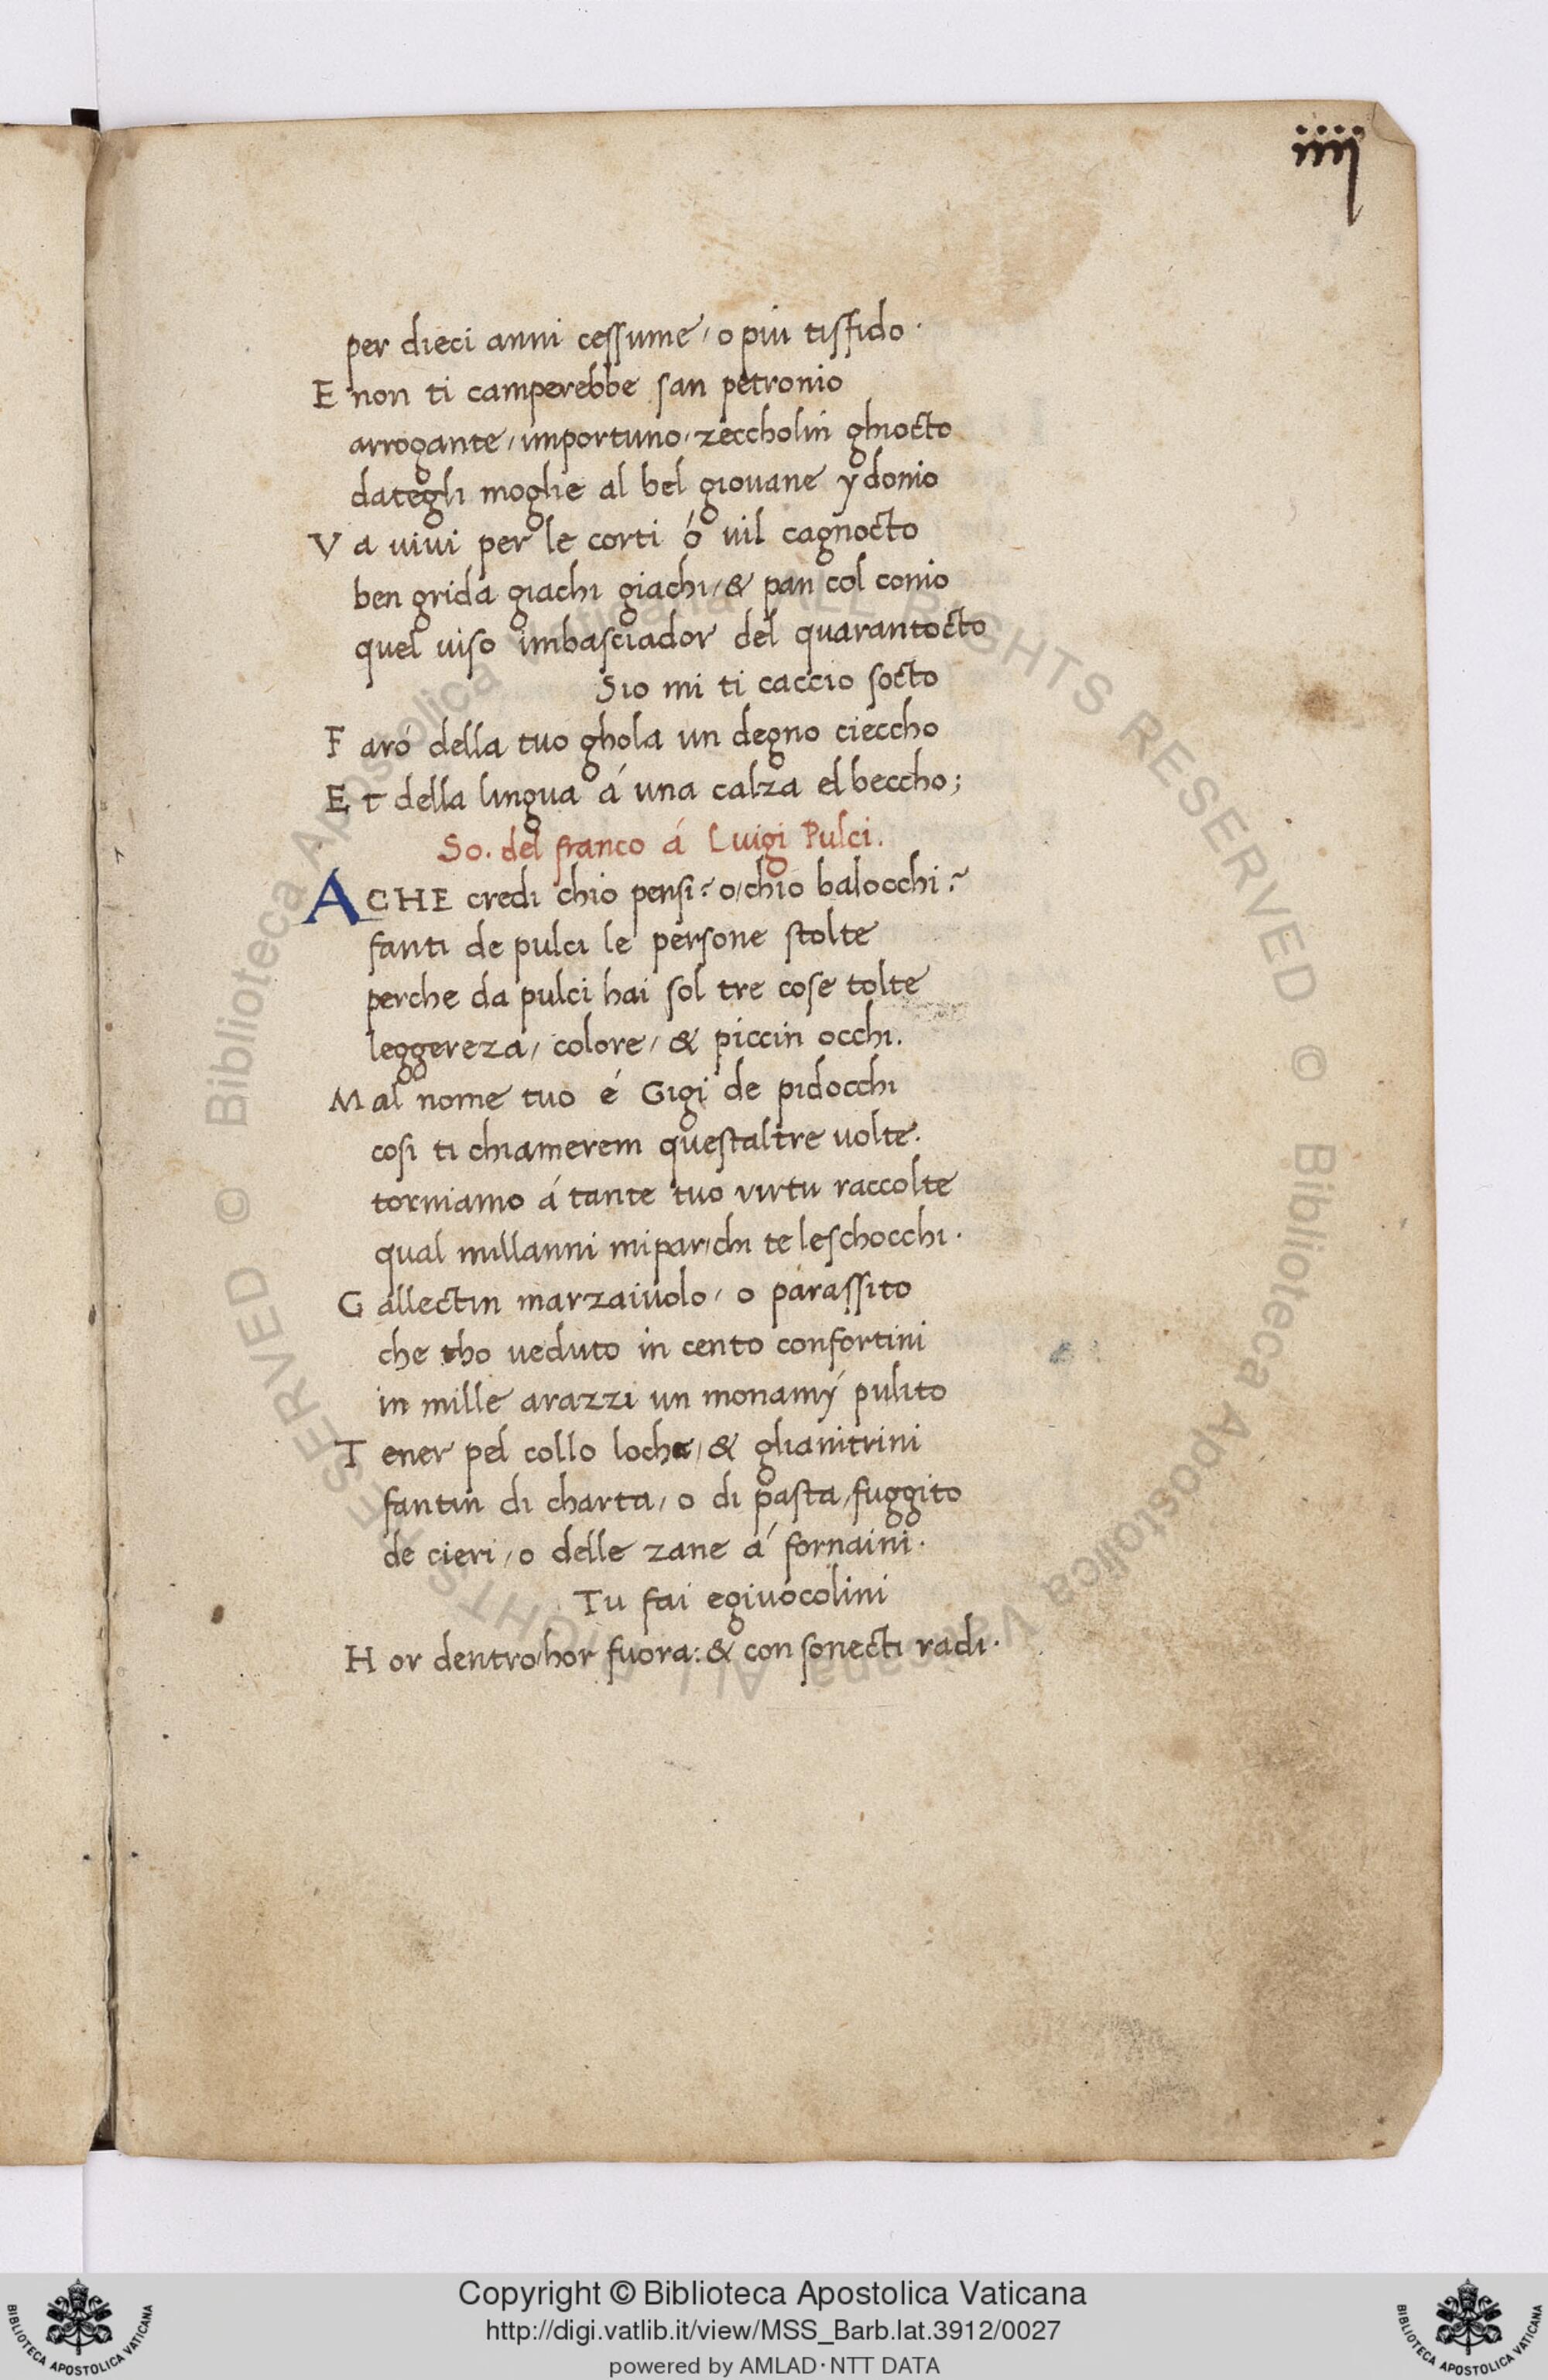 iiij
per dieci anni cessume, o piu tisfido.
E non ti camperebbe san petronio
arrogante, importuno, zeccholin ghiocto
dategli moglie al bel giouane ydonio
V a uiui per le corti ó uil cagnocto
ben grida giachi giachi, & pan col conio
quel uiso imbasciador del quarantocto
Sio mi ti caccio socto
F aró della tuo ghola un degno cieccho
E t della lingua á una calza el beccho;
So. del franco á Luigi Pulci.
ACHE credi chio pensi? o, chio balocchi?
fanti de pulci le persone stolte
perche da pulci hai sol tre cose tolte
leggereza, colore, & piccin occhi.
M al nome tuo é Gigi de pidocchi
cosi ti chiamerem questaltre uolte.
torniamo á tante tuo virtu raccolte
qual millanni mipar, chi te leschocchi.
G allectin marzaiuolo, o parassito
che tho ueduto in cento confortini
in mille arazzi un monamý pulito
T ener pel collo loche, & glianitrini
fantin di charta, o di pasta, fuggito
de cieri, o delle zane á fornaini.
Tu fai egiuocolini
H or dentro, hor fuora: & con sonecti radi.
© Biblioteca Apostolica Vaticana ALL RIGHTS RESERVED © Biblioteca Apostolica Vaticana ALL RIGHTS RESERVED
Copyright © Biblioteca Apostolica Vaticana
http://digi.vatlib.it/view/MSS_Barb.lat.3912/0027
powered by AMLAD·NTT DATA
BIBLIOTECA APOSTOLICA VATICANA
BIBLIOTECA APOSTOLICA VATICANA